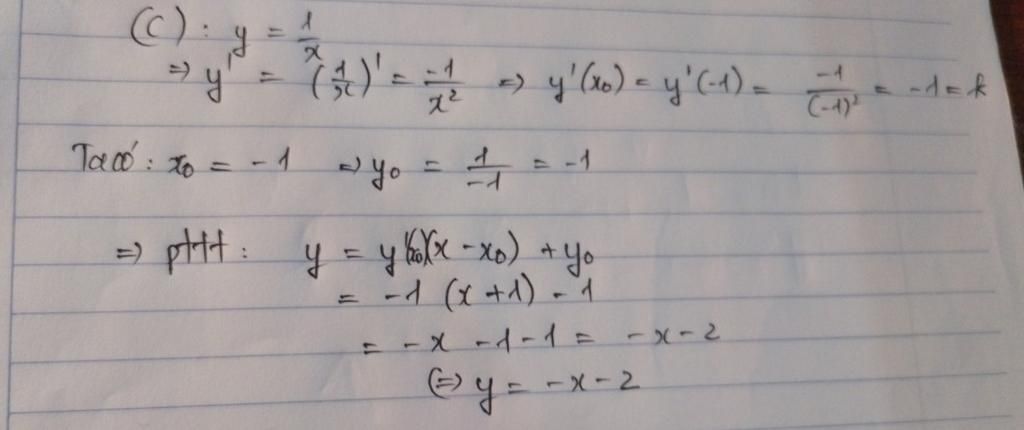 (C) : y = 1/x
=> y' = (1/x)' = -1/x² => y'(x₀) = y'(-1) = -1/(-1)² = -1 = k
Ta có : x₀ = -1 => y₀ = 1/-1 = -1
=> pttt : y = y'(x₀)(x - x₀) + y₀
= -1 (x + 1) - 1
= -x - 1 - 1 = -x - 2
(=) y = -x - 2